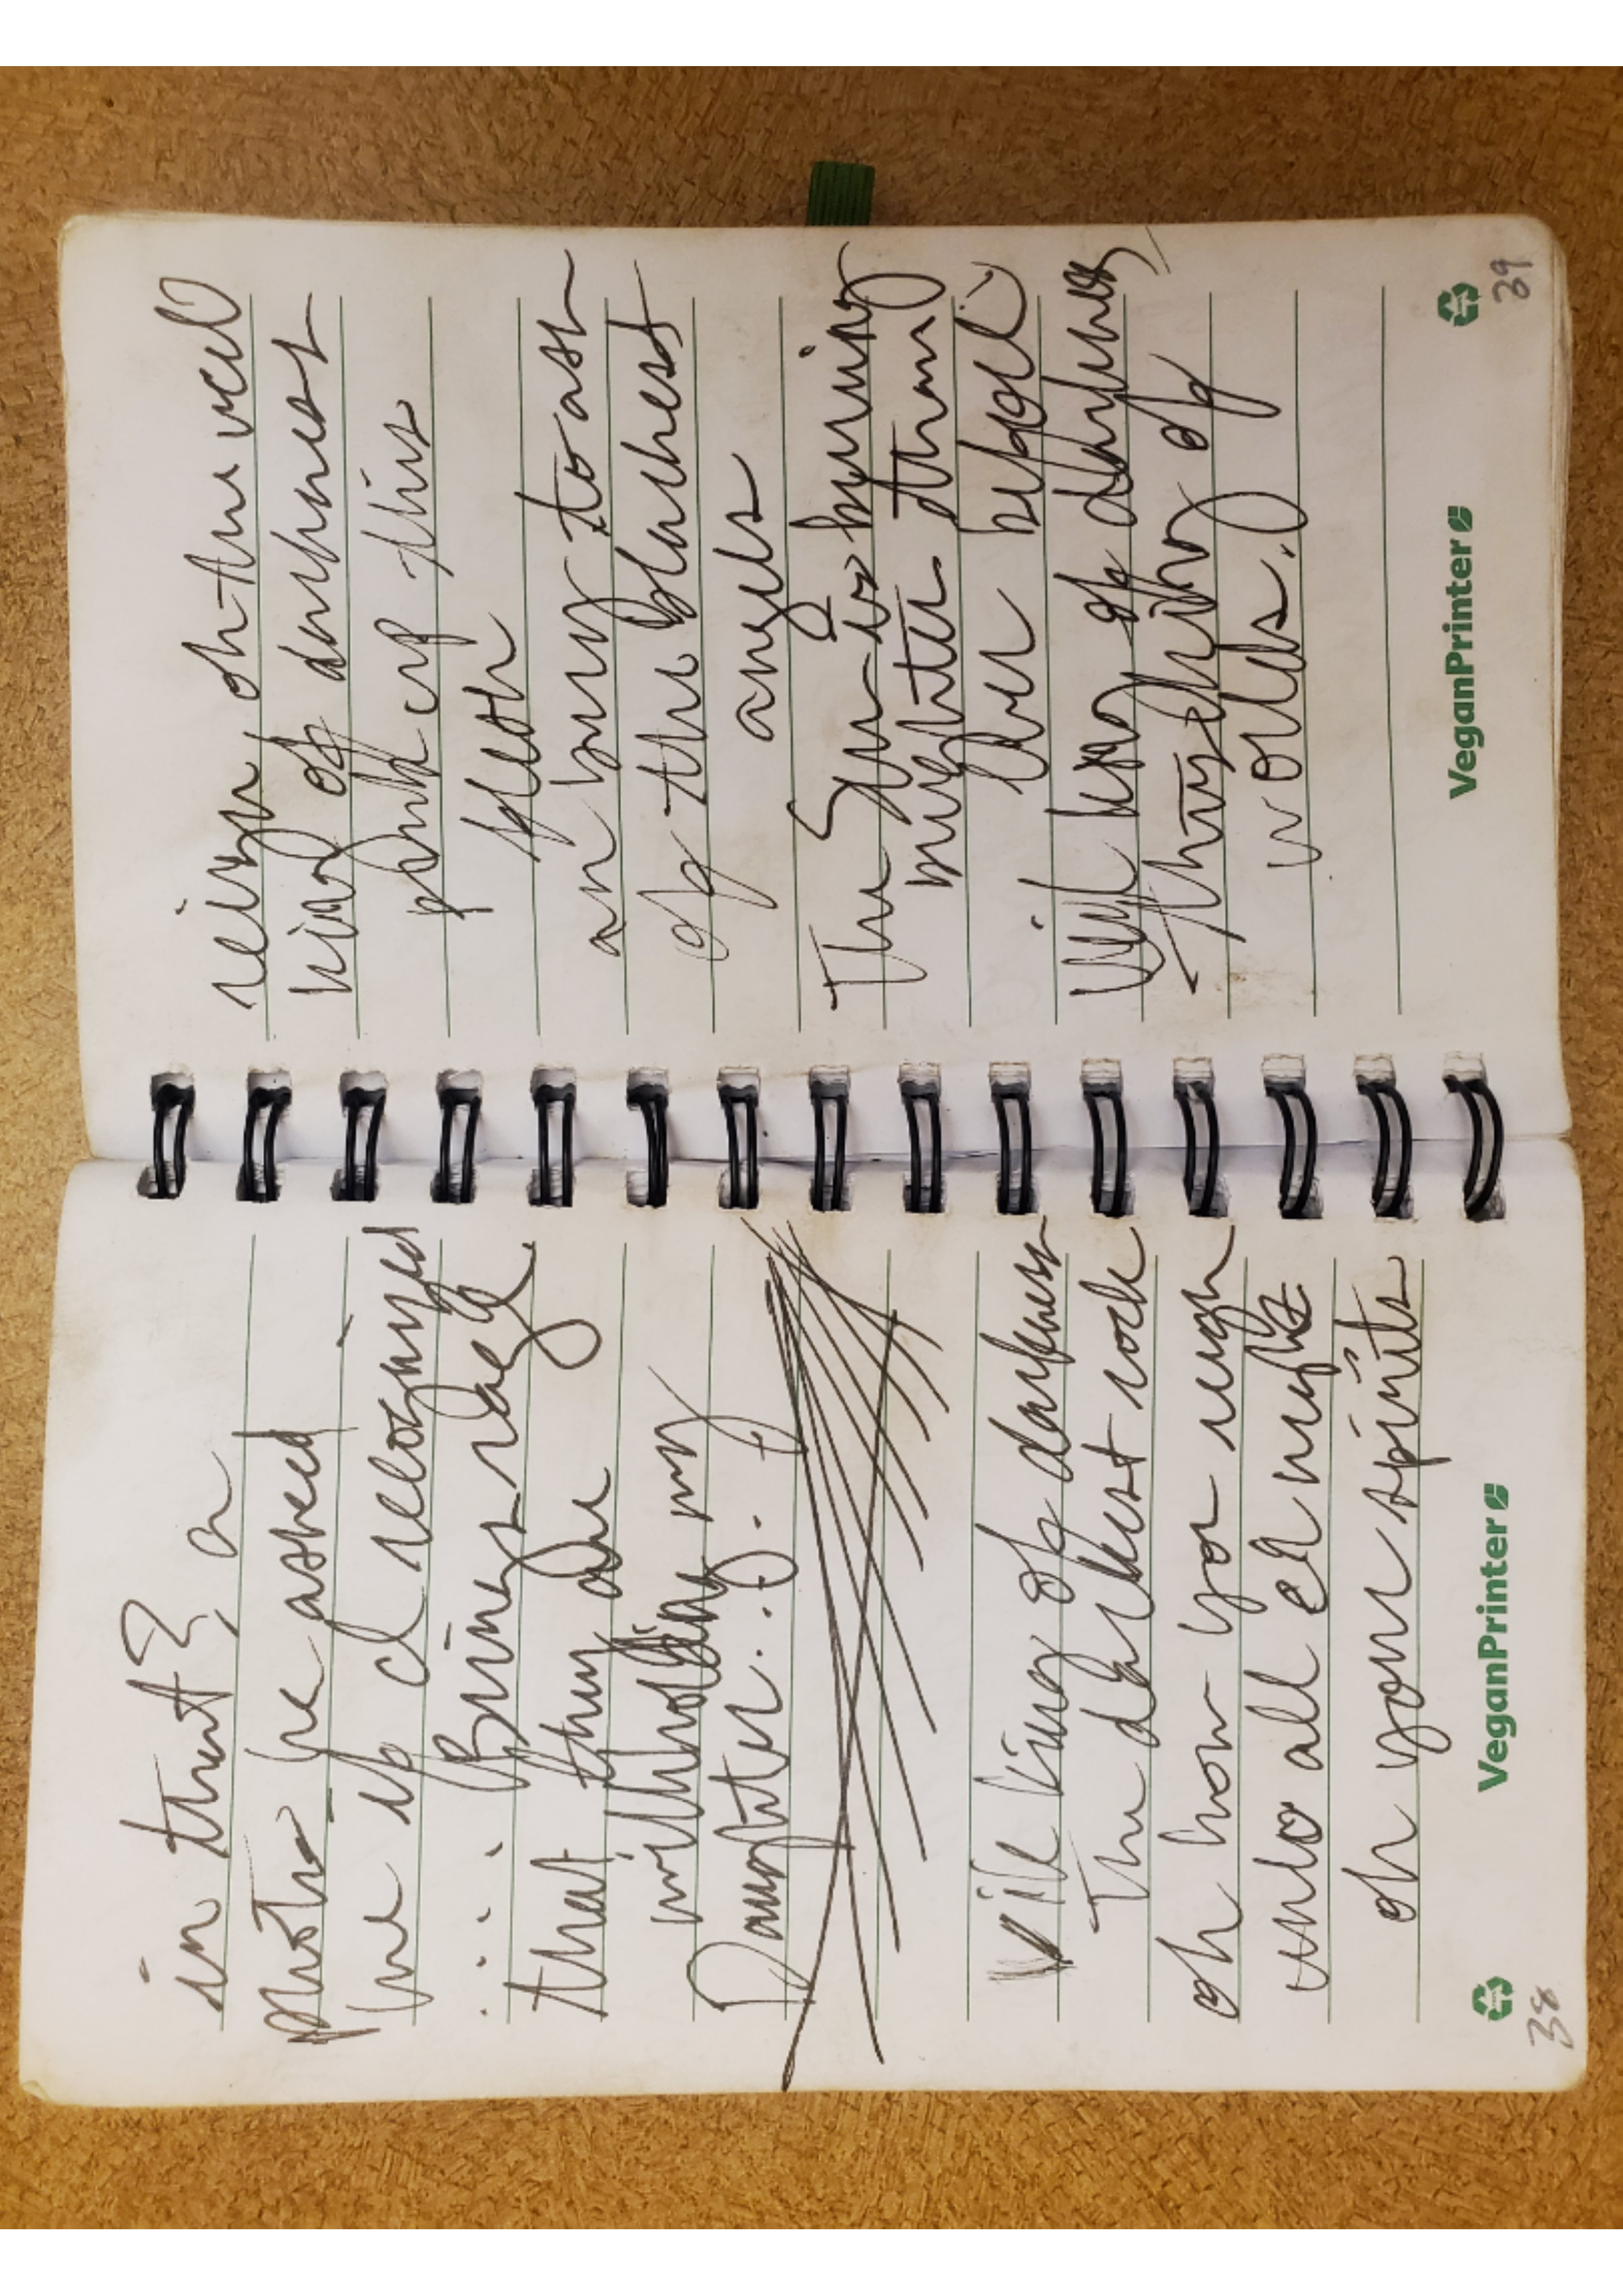 in that? a
photo he asked
me if I recognized
... Brings rage
that they are
withholding my
Daughter...
Vile king of darkness
The darkest rock
oh how you reign
unto all el night
oh your spirits
VeganPrinter
38
reign oh the veil
kind of darkness
of this
flesh
an bury to ash
of the blackest
angels
The Sun is burning
brighter than
ever before
Vile king of darkness,
Thy of
worlds.
VeganPrinter
39